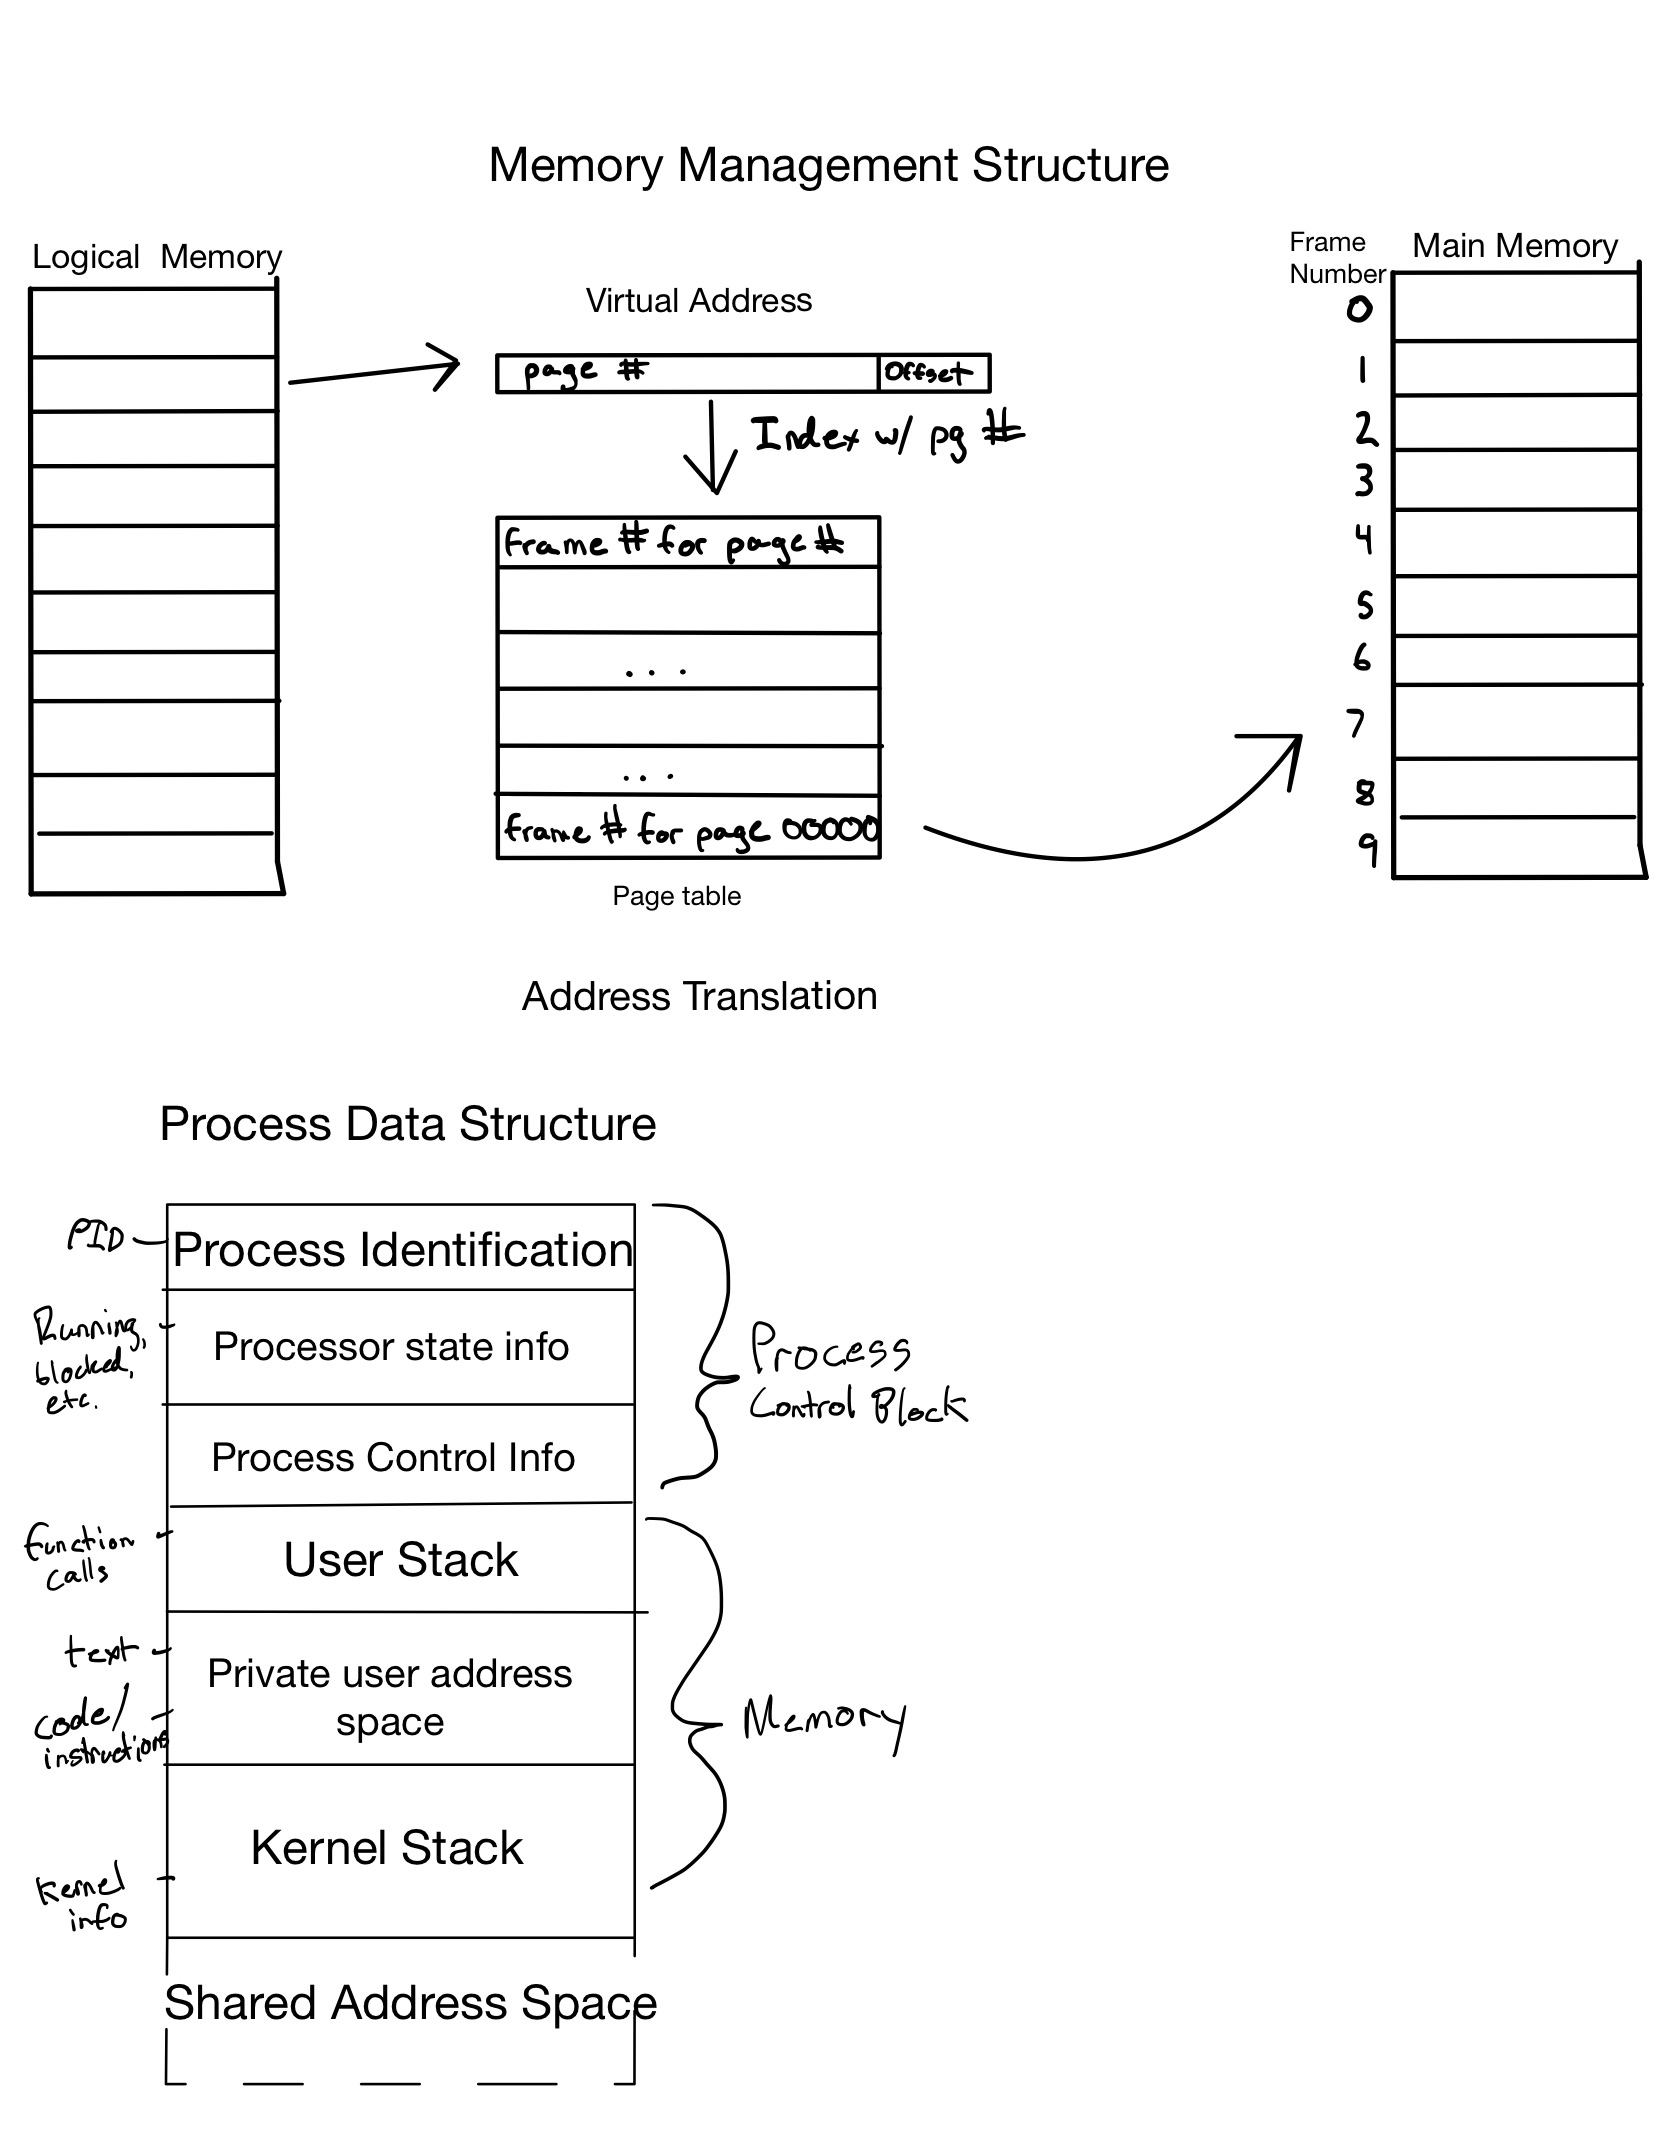 Memory Management Structure
Logical Memory
Virtual Address
page #
Offset
Index w/ pg #
frame # for page #
. . .
. . .
frame # for page 00000
Page table
Frame
Number
Main Memory
0
1
2
3
4
5
6
7
8
9
Address Translation
Process Data Structure
PID
Process Identification
Running,
blocked,
etc.
Processor state info
Process Control Info
Process
Control Block
function
calls
User Stack
text
code/
instructions
Private user address
space
Memory
Kernel Stack
Kernel
info
Shared Address Space